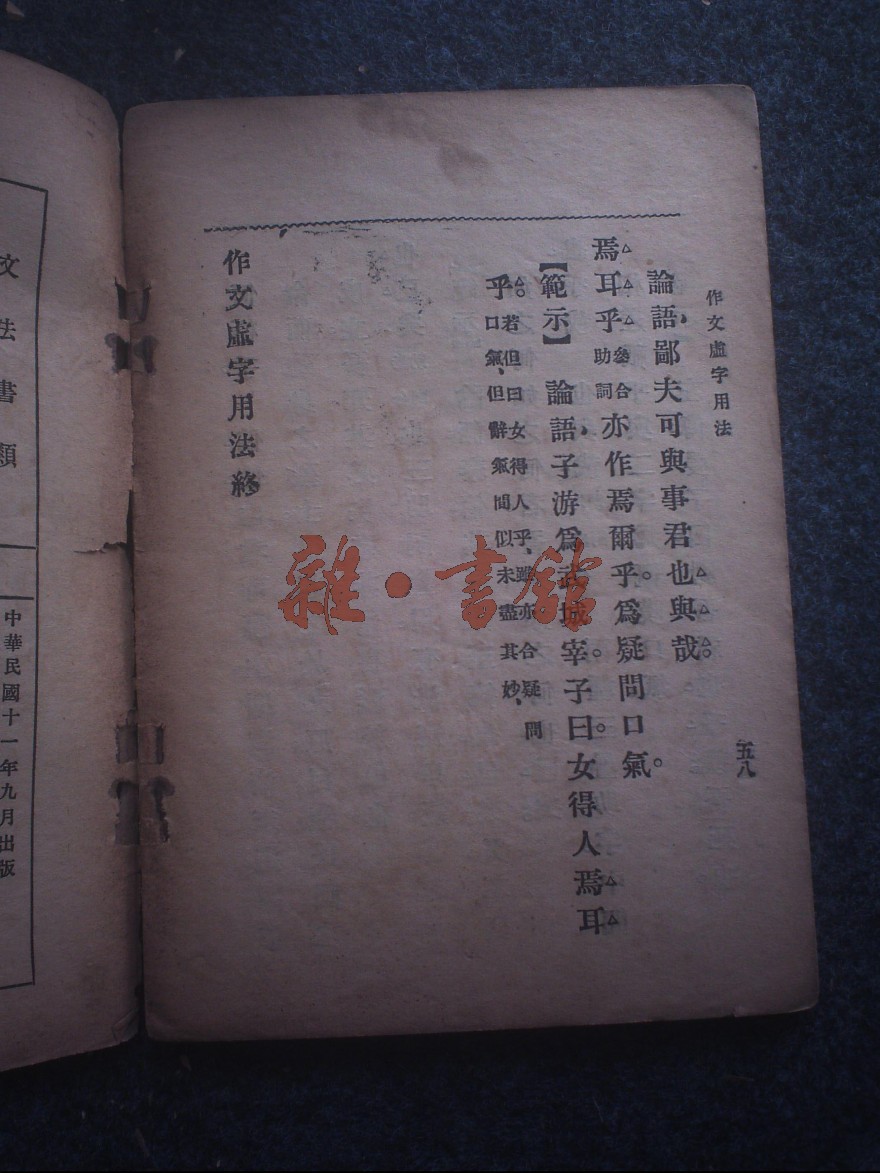 作文虛字用法
五八
論語、鄙夫可與事君也與哉。
焉耳乎參合助詞亦作焉爾乎。爲疑問口氣。
【範示】論語、子游爲武城宰。子曰。女得人焉耳
乎。若但曰女得人乎、雖亦合疑問口氣、但辭氣間似未盡其妙、
作文虛字用法終
雜·書館
文法書類
中華民國十一年九月出版